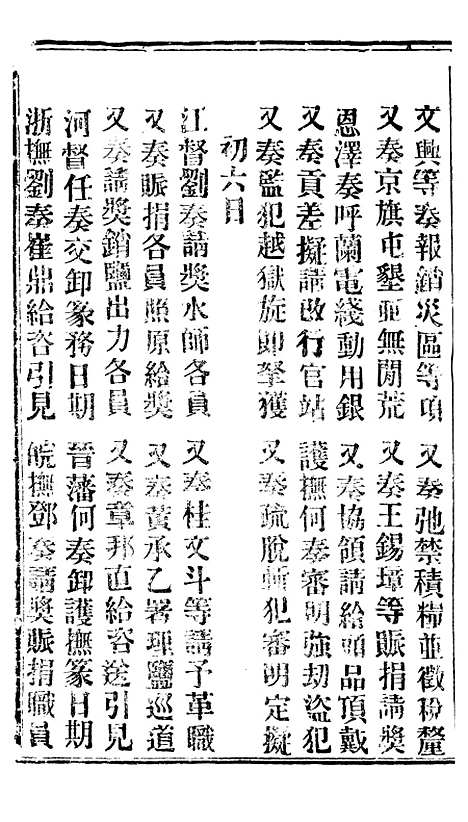 文興等奏報銷災區等項　又奏弛禁積糧並徵粉釐
又奏京旗屯墾亟無閒荒　又奏王錫璋等賑捐請獎
恩澤奏呼蘭電綫動用銀　又奏協領請給頭品頂戴
又奏貢差擬請改行官站　護撫何奏審明強劫盜犯
又奏監犯越獄旋即拏獲　又奏疏脫斬犯審明定擬
初六日
江督劉奏請獎水師各員　又奏桂文斗等請予革職
又奏賑捐各員照原給獎　又奏黃承乙署理鹽巡道
又奏請獎銷鹽出力各員　又奏章邦直給咨送引見
河督任奏交卸篆務日期　晉藩何奏卸護撫篆日期
浙撫劉奏崔鼎給咨引見　皖撫鄧奏請獎賑捐職員